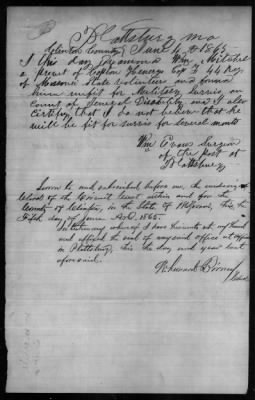 Plattsburg, Mo
Clinton County June 4th 1865
I this day Examined Wm Mitchel
a privet of Captin Co F 44 Reg
of Missouri State Volunteers and found
him unfit for Military Survis, on
Count of General Disability and I also
certify that I do not beleave that he
will be fit for survis for several months
Wm Evans Surgeon
of the post at
Plattsburg
Sworn to and subscribed before me, the undersigned
Clerk of the Circuit Court within and for the
County of Clinton, in the State of Missouri, this, the
Fifth day of June A.D. 1865.
In testimony whereof I have hereunto set my hand
and affixed the seal of my said office at office
in Plattsburg, this the day and year last
aforesaid.
Birney
Clerk